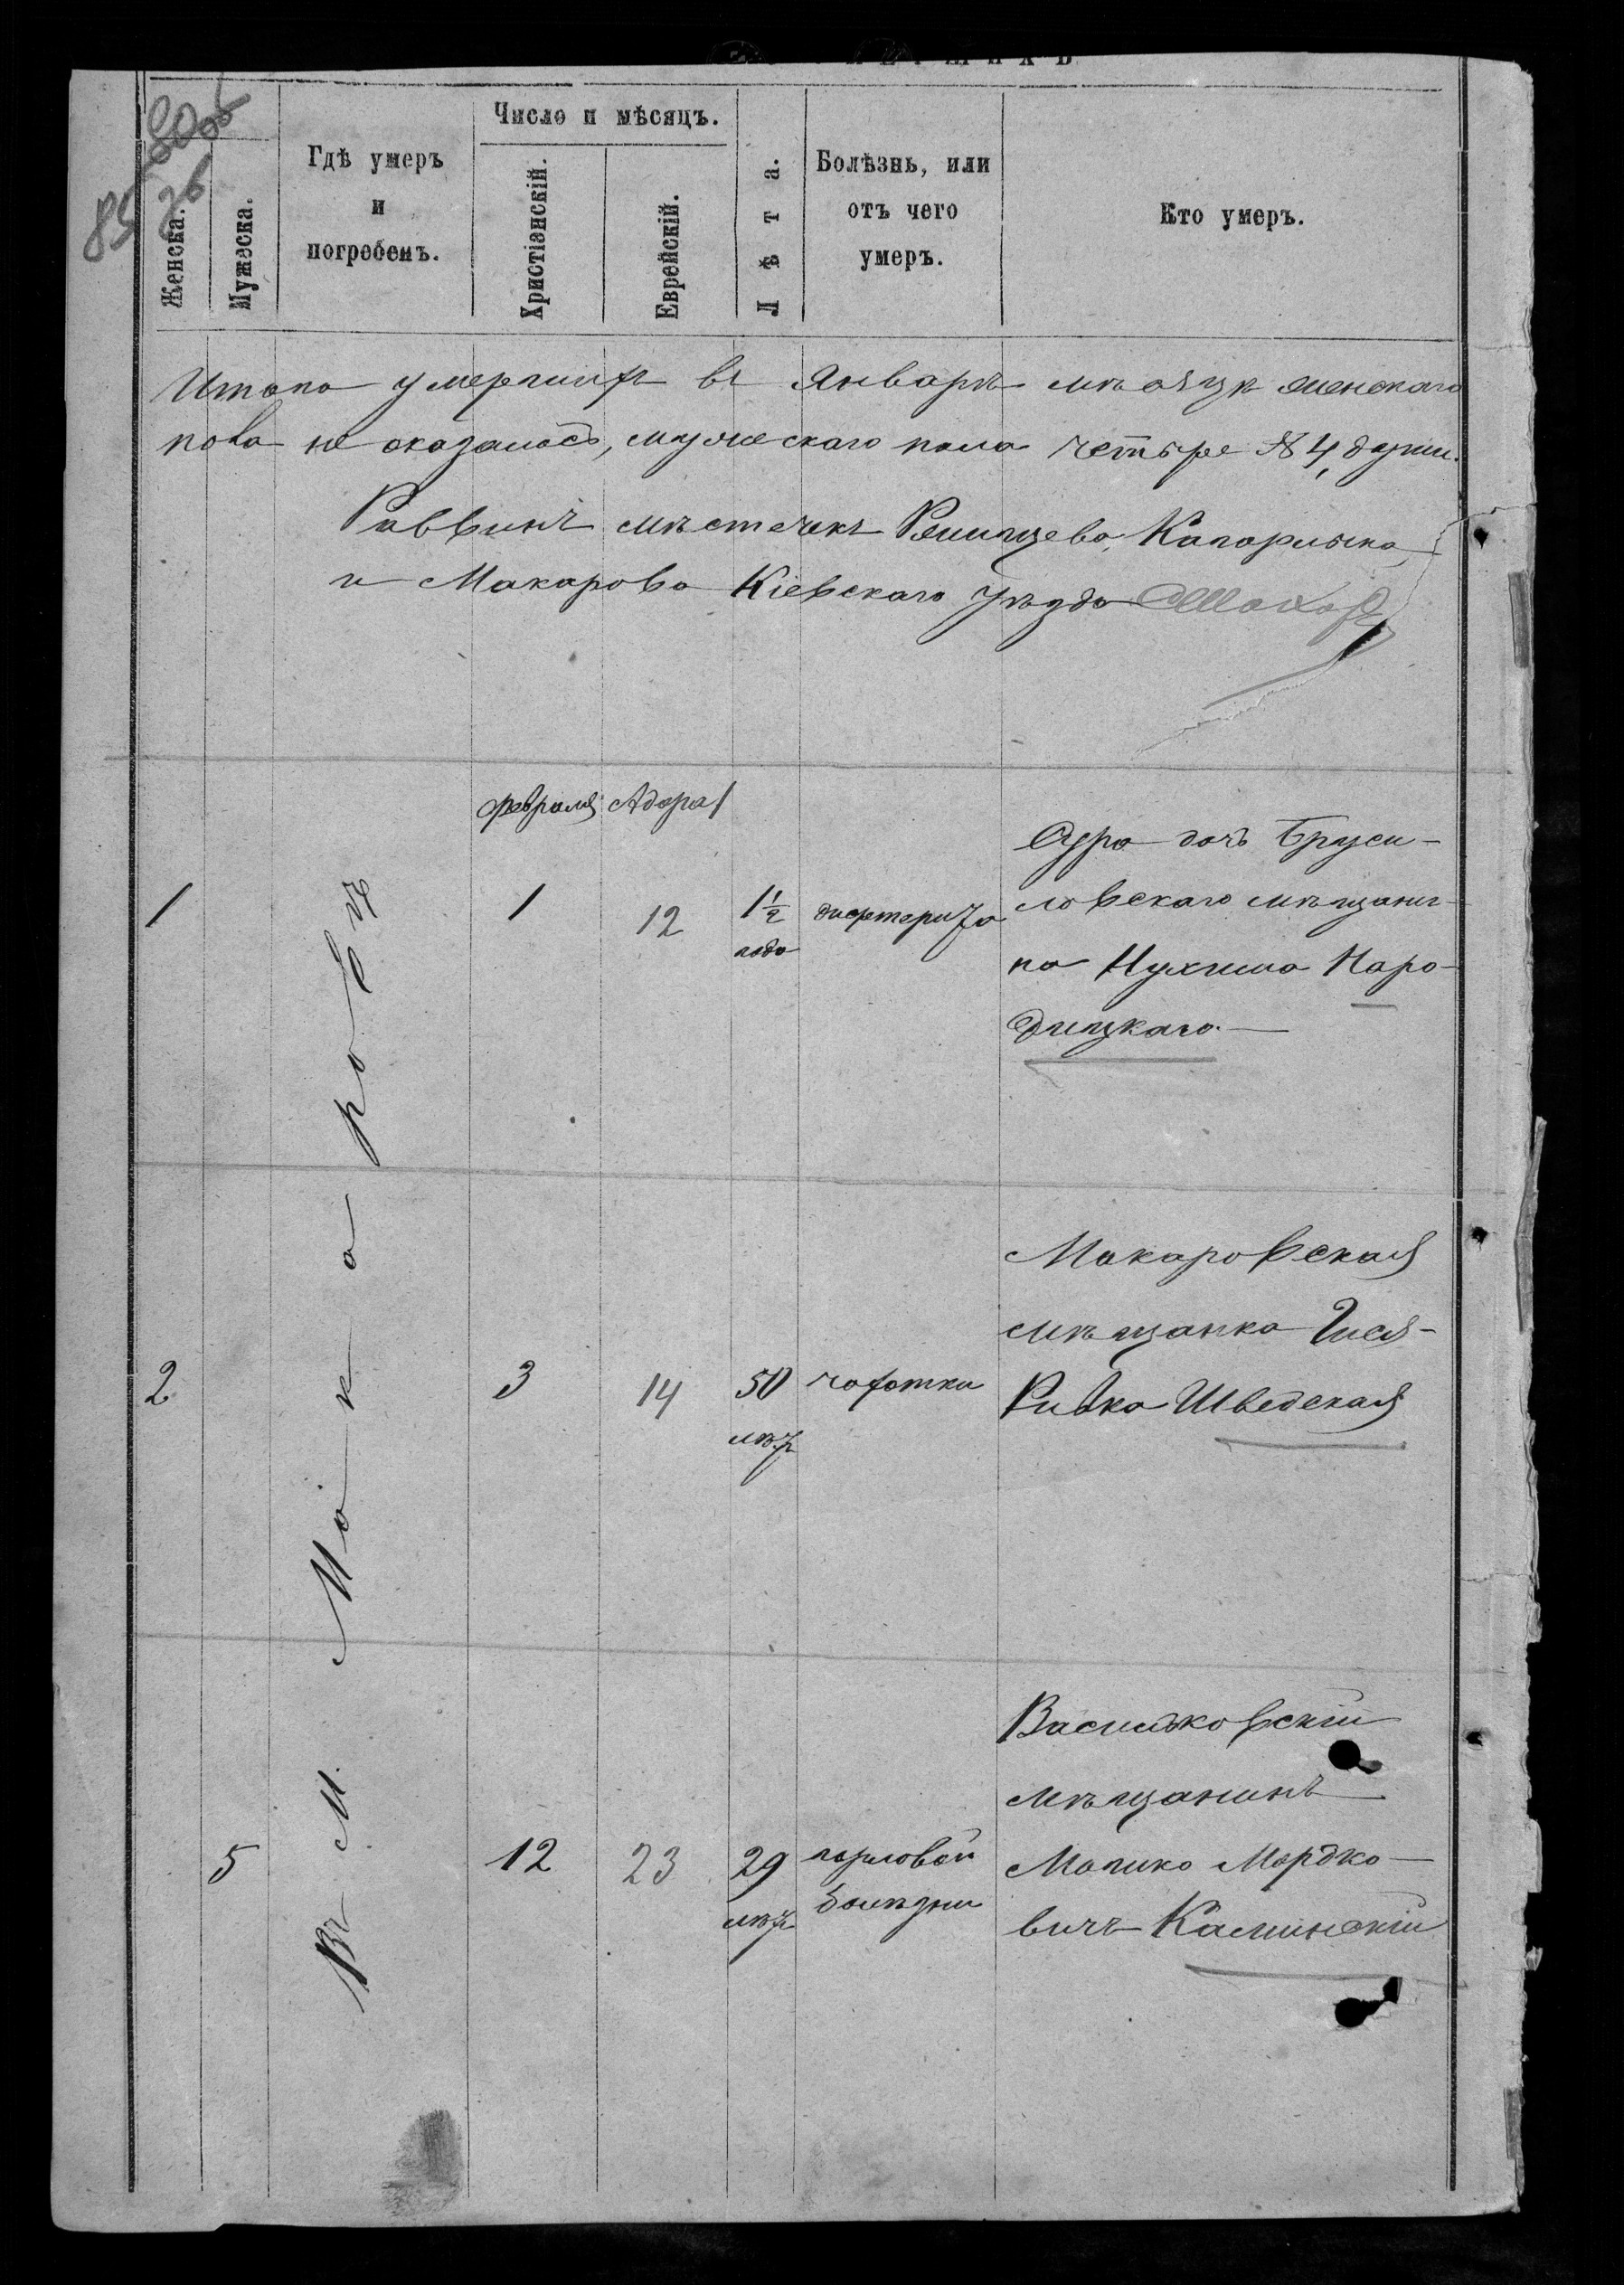 80 об
85 26
Число и мѣсяцъ.
Женска.
Мужеска.
Гдѣ умеръ
и
погребенъ.
Христіянскій.
Еврейскій.
Лѣта.
Болѣзнь, или
отъ чего
умеръ.
Кто умеръ.
Итого умершихъ въ Январѣ мѣсяцѣ женскаго
пола не оказалось, мужескаго пола четыре № 4, души.
Раввинъ мѣстечекъ Рожева, Копорилска
и Макарова Кіевскаго уѣзда
Февраля Адара 1
1
1
12
1 1/2
года
дифтерита
Сура дочь Бруси-
ловскаго мѣщани-
на Нухима Наро-
дицкаго.
2
3
14
50
лѣтъ
чахотки
Макаровская
мѣщанка Гися-
Ривка Шведская
5
12
23
29
лѣтъ
горловой
болѣзни
Васильковскій
мѣщанинъ
Мошко Мордко-
вичъ Каминскій
Въ М. Макаровъ